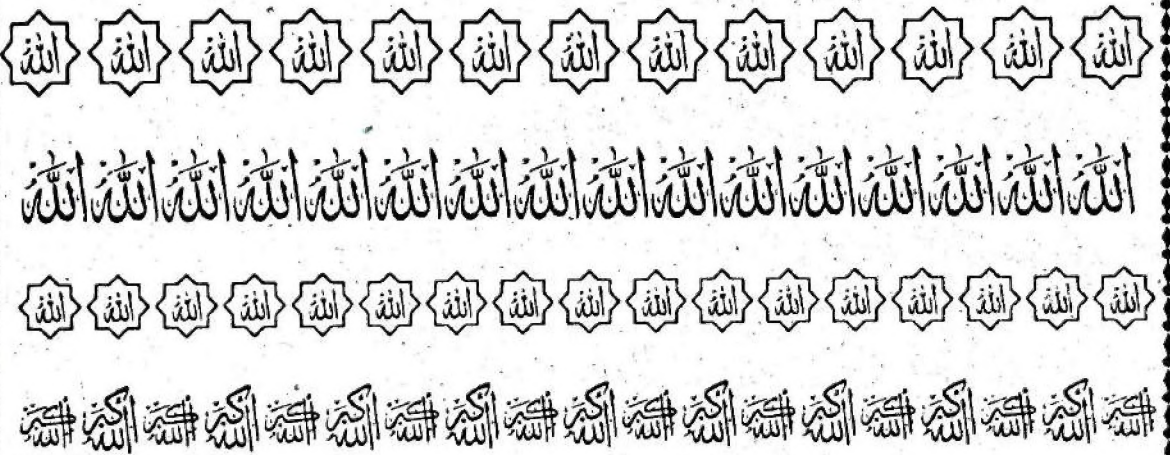 الله الله الله الله الله الله الله الله الله الله الله الله الله
الله الله الله الله الله الله الله الله الله الله الله الله الله الله الله الله
الله الله الله الله الله الله الله الله الله الله الله الله الله الله الله الله الله
الله أكبر الله أكبر الله أكبر الله أكبر الله أكبر الله أكبر الله أكبر الله أكبر الله أكبر الله أكبر الله أكبر الله أكبر الله أكبر الله أكبر الله أكبر الله أكبر الله أكبر الله أكبر الله أكبر